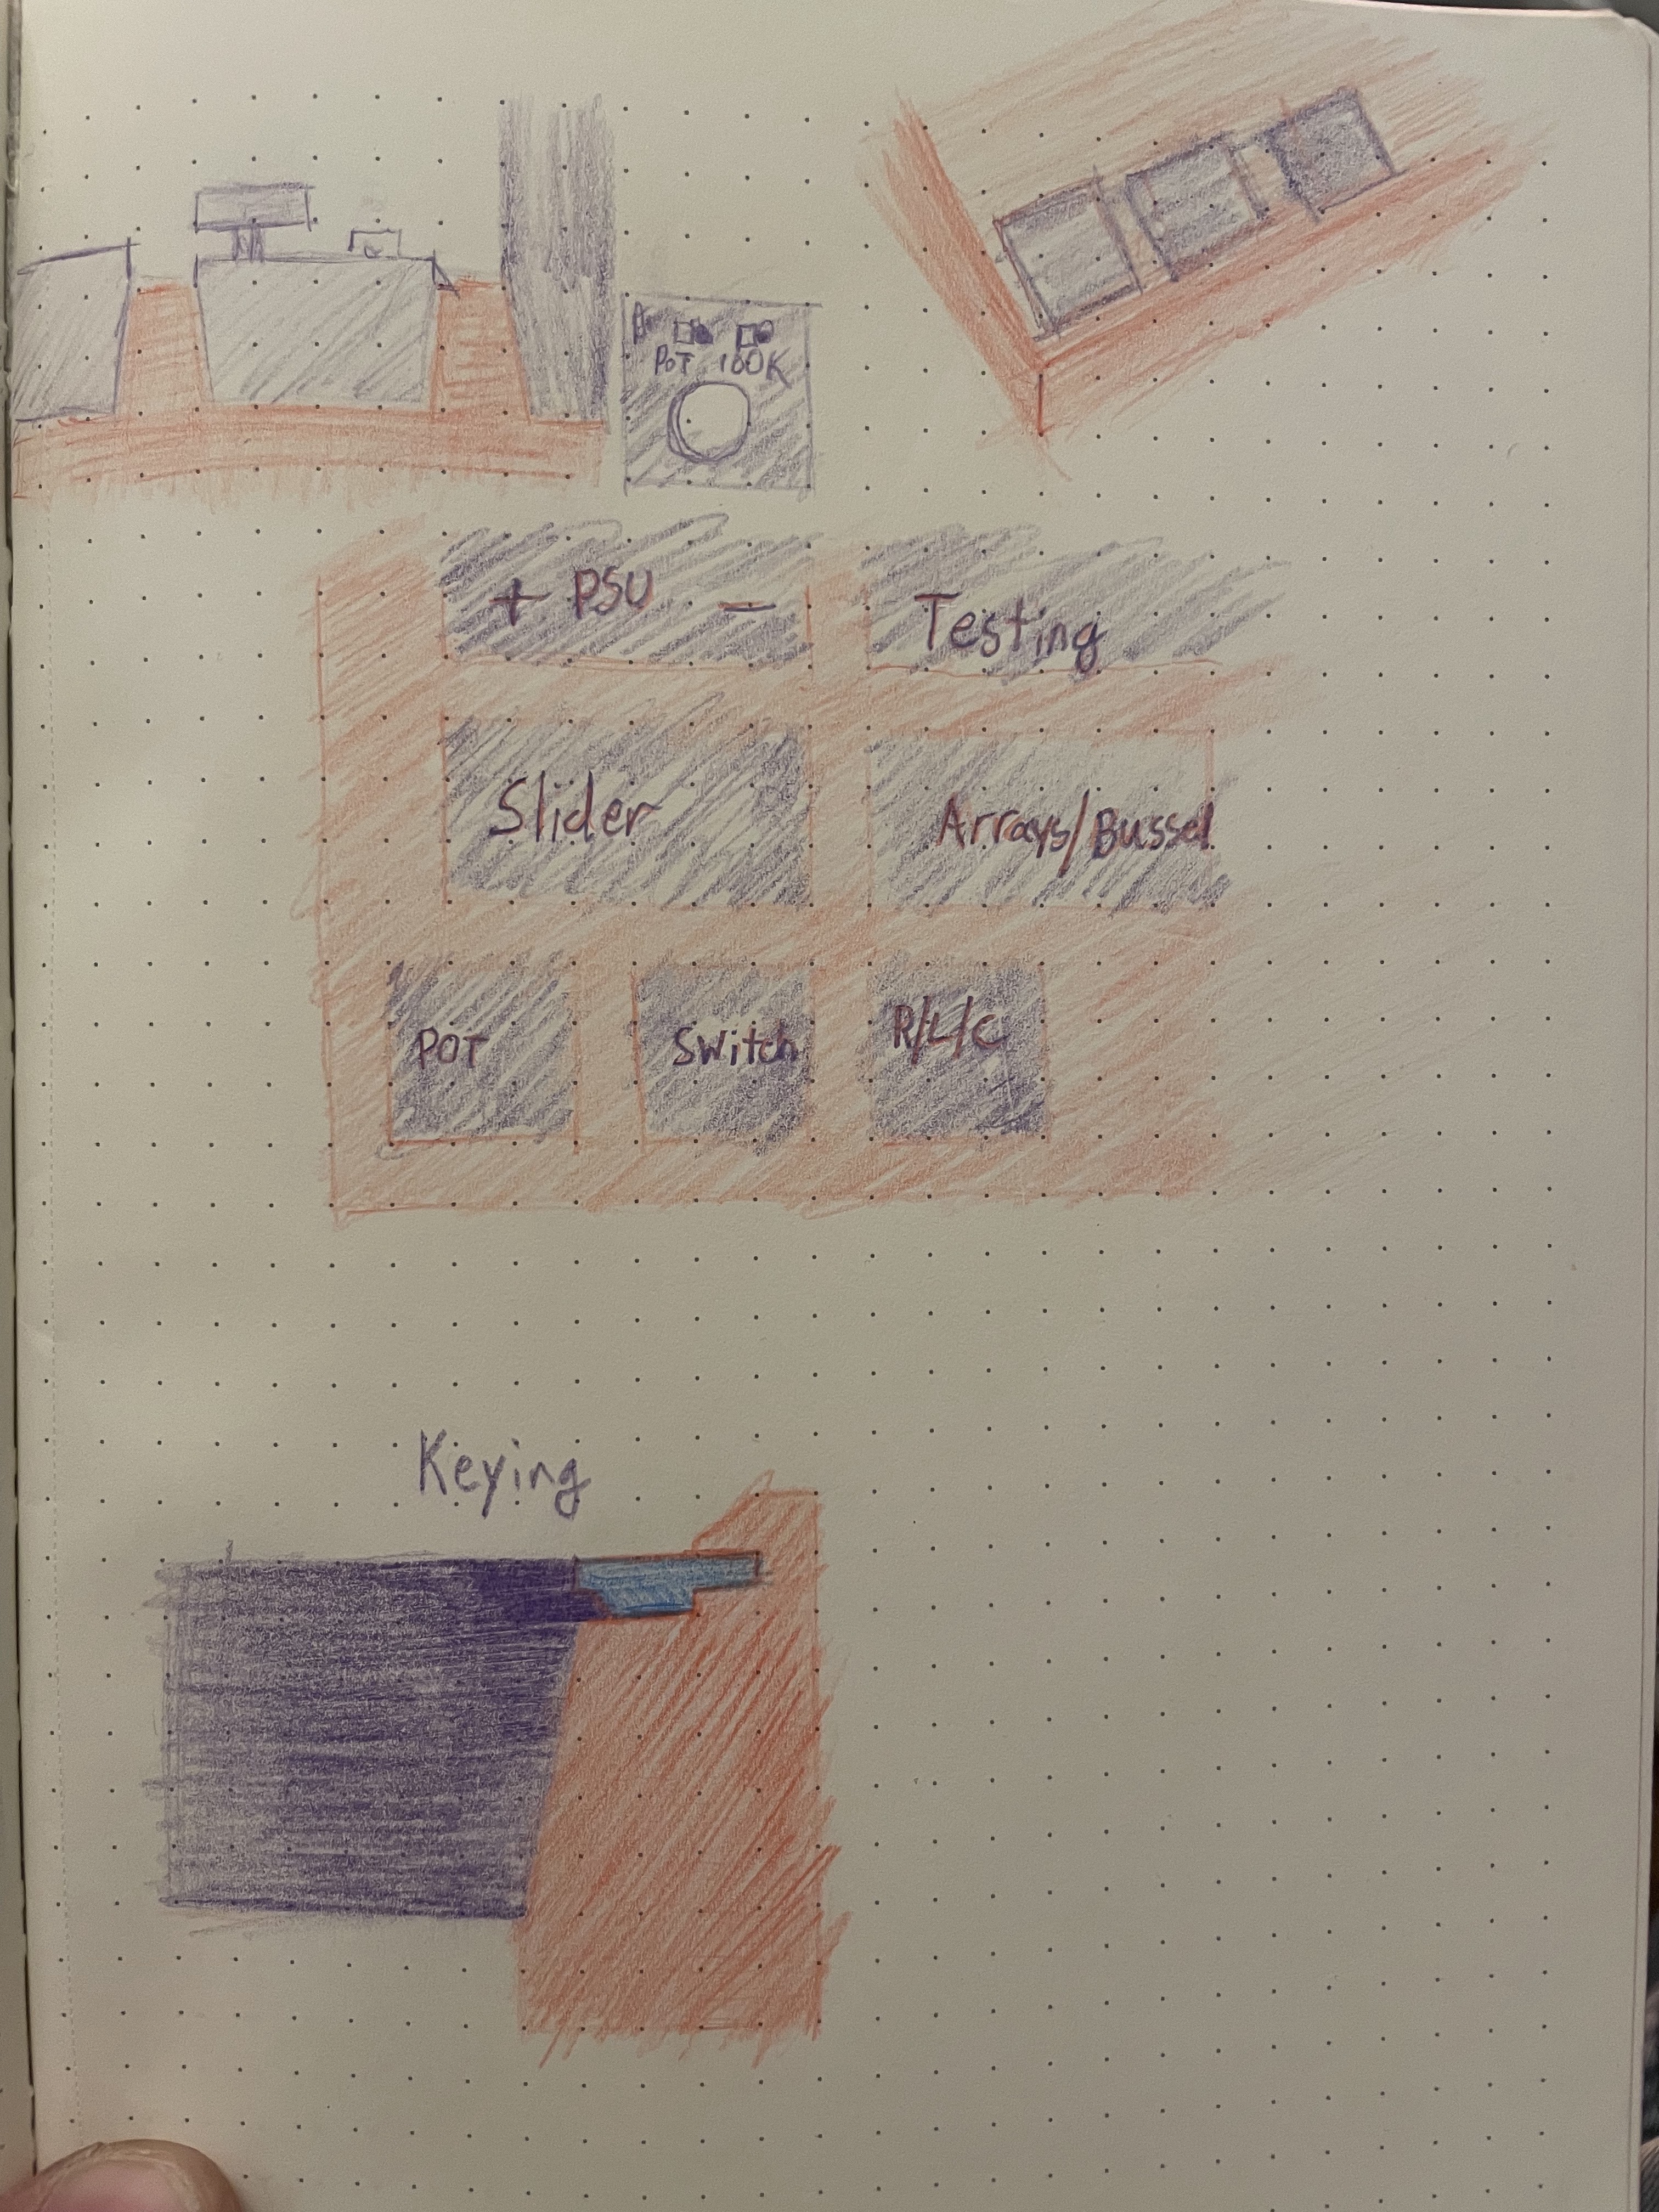 POT 100K
+ PSU -
Testing
Slider
Arrays/Bussed
POT
Switch
R/L/C
Keying